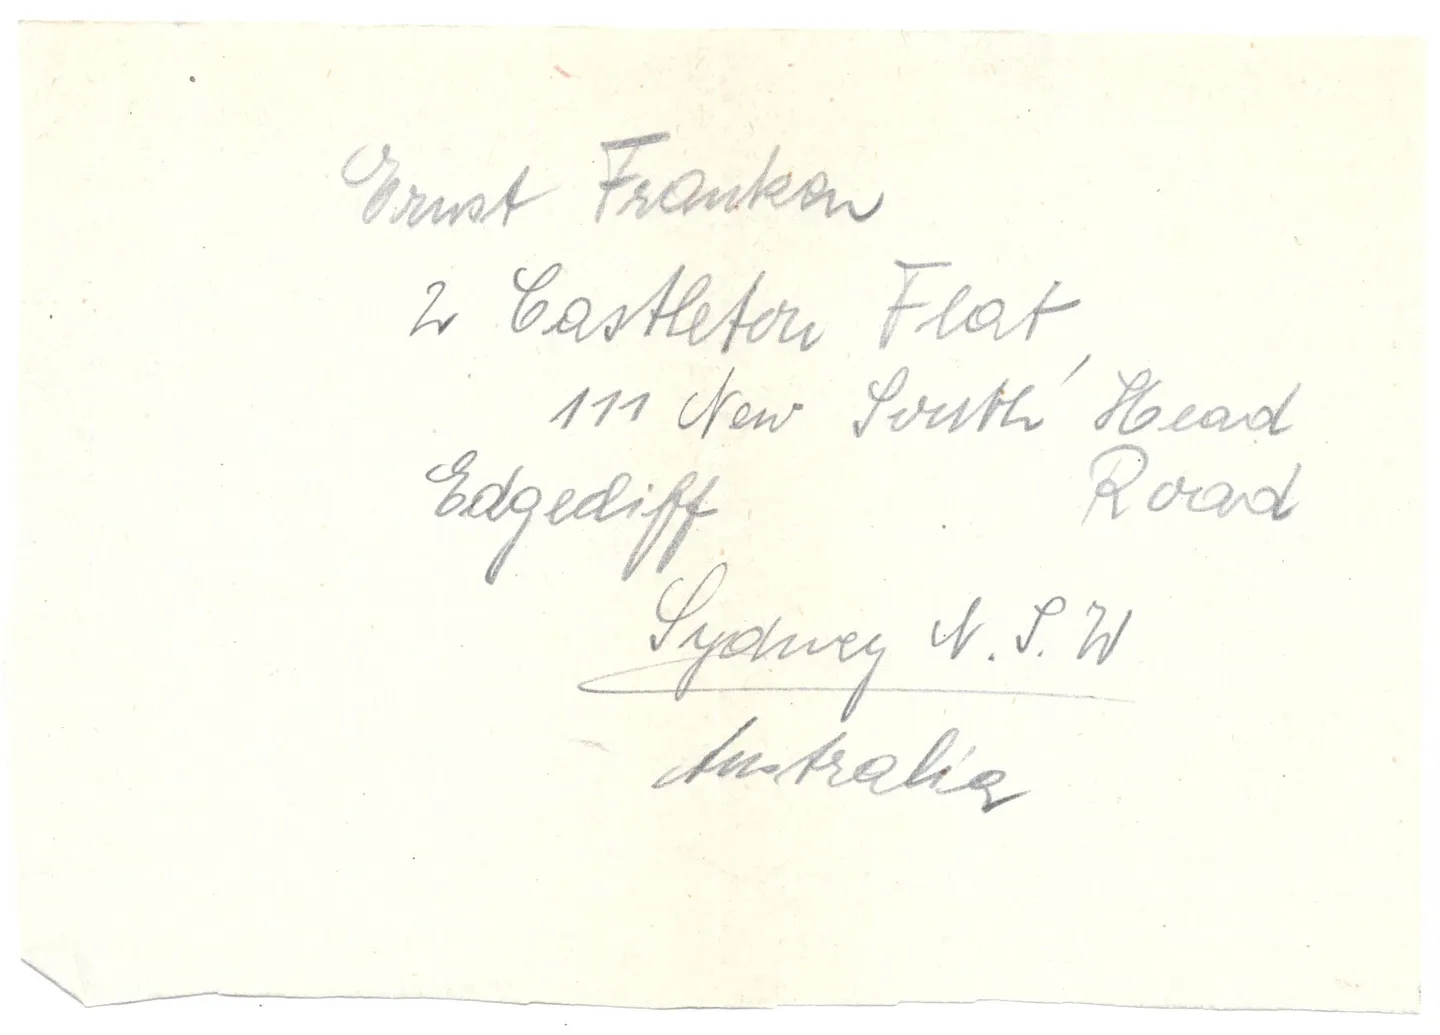 Ernst Franken
2 Castleton Flat,
111 New South Head
Road
Edgecliff
Sydney N.S.W
Australia